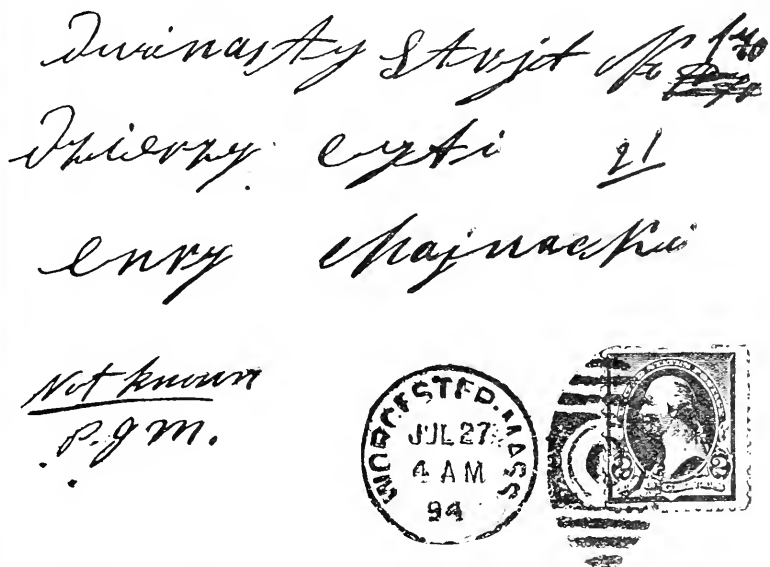 Dwinasty Strojt No
Dzierzy cyti 21
enry Chajnacki
Not known
P.G.M.
WORCESTER. MASS
JUL 27
4 AM
94
2 2